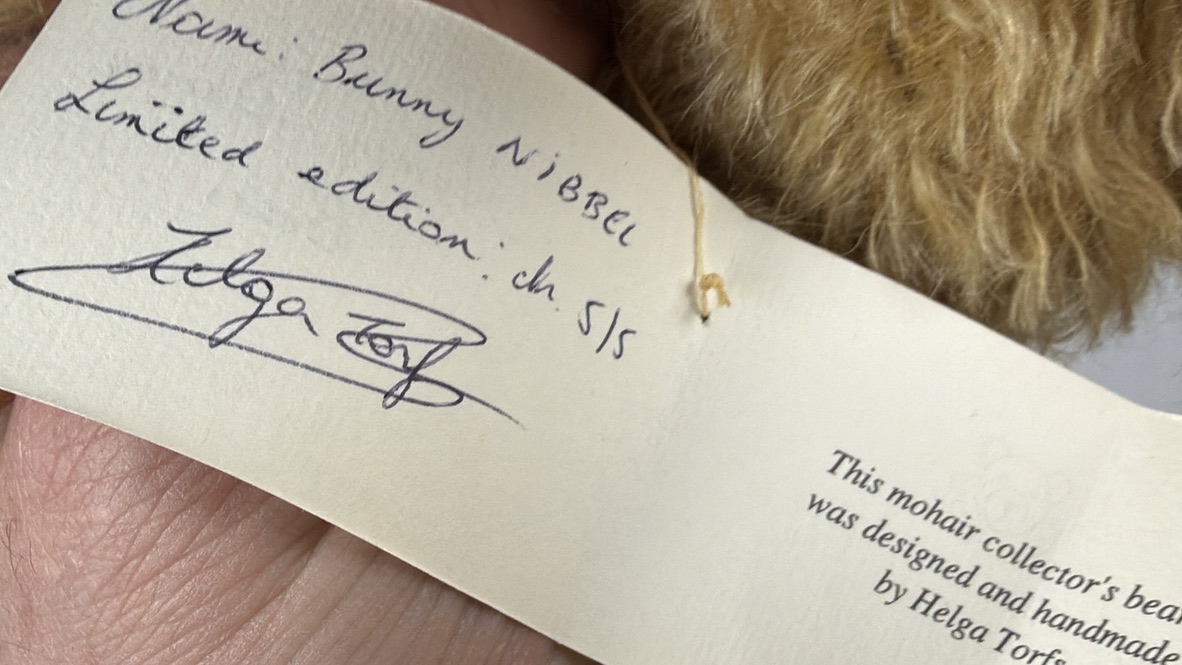 Name: Bunny NiBBEL
Limited edition: 5/5
Helga Torfs
This mohair collector's bear
was designed and handmade
by Helga Torfs